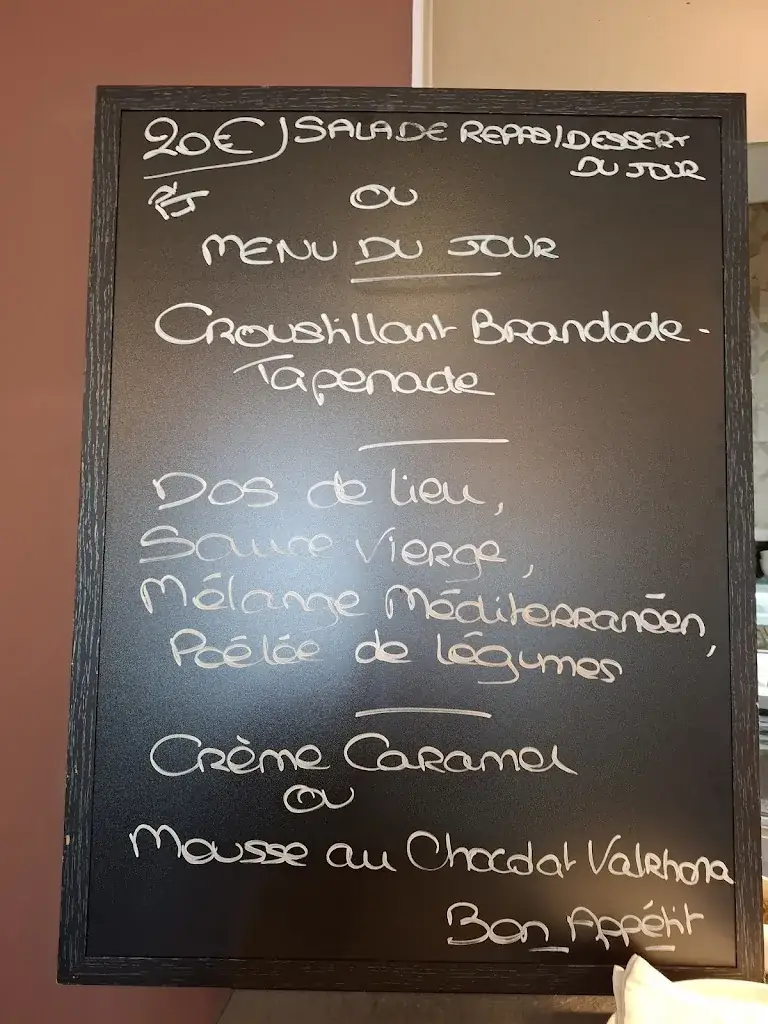 20€ SALADE REPAS/DESSERT
DU JOUR
OU
MENU DU JOUR
Croustillant Brandade-
Tapenade
Dos de lieu,
Sauce Vierge,
Mélange Méditerranéen,
Poêlée de légumes
Crème Caramel
OU
Mousse au Chocolat Valrhona
Bon Appétit